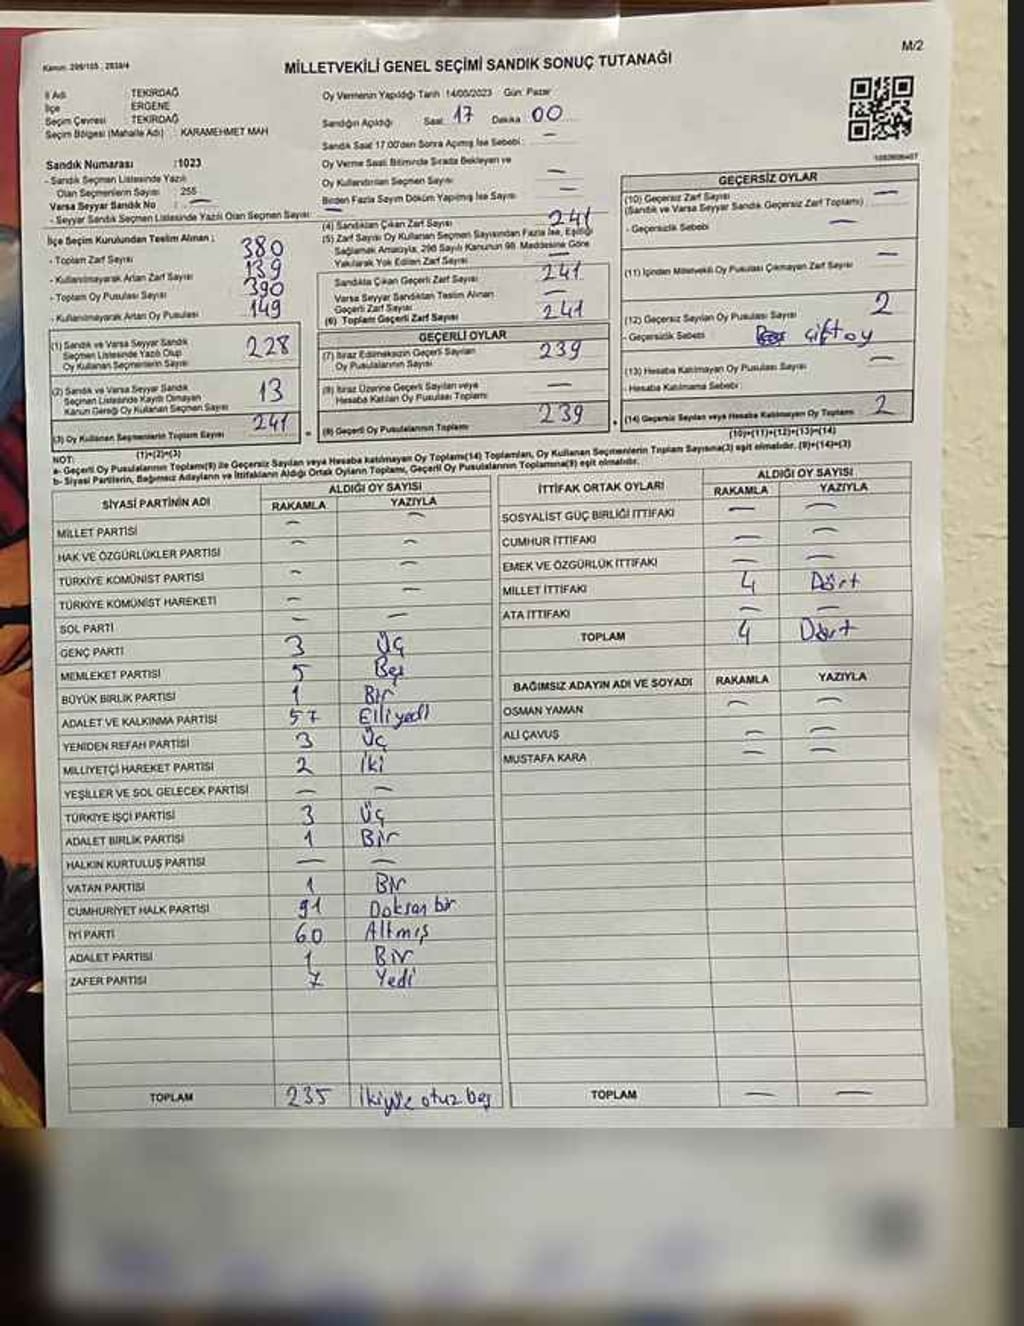 M/2
Kanun: 298/105 : 2839/4
MİLLETVEKİLİ GENEL SEÇİMİ SANDIK SONUÇ TUTANAĞI
İl Adı TEKİRDAĞ
İlçe ERGENE
Seçim Çevresi TEKİRDAĞ
Seçim Bölgesi (Mahalle Adı) : KARAMEHMET MAH
Sandık Numarası :1023
- Sandık Seçmen Listesinde Yazılı
Olan Seçmenlerin Sayısı 255
Varsa Seyyar Sandık No : —
- Seyyar Sandık Seçmen Listesinde Yazılı Olan Seçmen Sayısı —
İlçe Seçim Kurulundan Teslim Alınan ;
- Toplam Zarf Sayısı 380
- Kullanılmayarak Artan Zarf Sayısı 139
- Toplam Oy Pusulası Sayısı 390
- Kullanılmayarak Artan Oy Pusulası 149
(1) Sandık ve Varsa Seyyar Sandık
Seçmen Listesinde Yazılı Olup
Oy Kullanan Seçmenlerin Sayısı 228
(2) Sandık ve Varsa Seyyar Sandık
Seçmen Listesinde Kayıtlı Olmayan
Kanun Gereği Oy Kullanan Seçmen Sayısı 13
(3) Oy Kullanan Seçmenlerin Toplam Sayısı 241
(1)+(2)=(3)
Oy Vermenin Yapıldığı Tarih :14/05/2023 Gün: Pazar
Sandığın Açıldığı Saat: 17 Dakika 00
Sandık Saat 17:00'den Sonra Açılmış İse Sebebi : —
Oy Verme Saati Bitiminde Sırada Bekleyen ve
Oy Kullandırılan Seçmen Sayısı —
Birden Fazla Sayım Döküm Yapılmış İse Sayısı —
(4) Sandıktan Çıkan Zarf Sayısı 241
(5) Zarf Sayısı Oy Kullanan Seçmen Sayısından Fazla İse, Eşitliği
Sağlamak Amacıyla, 298 Sayılı Kanunun 98. Maddesine Göre
Yakılarak Yok Edilen Zarf Sayısı —
Sandıkta Çıkan Geçerli Zarf Sayısı 241
Varsa Seyyar Sandıktan Teslim Alınan
Geçerli Zarf Sayısı —
(6) Toplam Geçerli Zarf Sayısı 241
GEÇERLİ OYLAR
(7) İtiraz Edilmeksizin Geçerli Sayılan
Oy Pusulalarının Sayısı 239
(8) İtiraz Üzerine Geçerli Sayılan veya
Hesaba Katılan Oy Pusulası Toplamı —
(9) Geçerli Oy Pusulalarının Toplamı 239
GEÇERSİZ OYLAR
(10) Geçersiz Zarf Sayısı
(Sandık ve Varsa Seyyar Sandık Geçersiz Zarf Toplamı) —
- Geçersizlik Sebebi —
(11) İçinden Milletvekili Oy Pusulası Çıkmayan Zarf Sayısı —
(12) Geçersiz Sayılan Oy Pusulası Sayısı 2
- Geçersizlik Sebebi çift oy
(13) Hesaba Katılmayan Oy Pusulası Sayısı —
- Hesaba Katılmama Sebebi :
(14) Geçersiz Sayılan veya Hesaba Katılmayan Oy Toplamı 2
(10)+(11)+(12)+(13)=(14)
NOT:
a- Geçerli Oy Pusulalarının Toplamı(9) ile Geçersiz Sayılan veya Hesaba katılmayan Oy Toplamı(14) Toplamları, Oy Kullanan Seçmenlerin Toplam Sayısına(3) eşit olmalıdır. (9)+(14)=(3)
b- Siyasi Partilerin, Bağımsız Adayların ve İttifakların Aldığı Ortak Oyların Toplamı, Geçerli Oy Pusulalarının Toplamına(9) eşit olmalıdır.
SİYASİ PARTİNİN ADI ALDIĞI OY SAYISI
RAKAMLA YAZIYLA
MİLLET PARTİSİ — —
HAK VE ÖZGÜRLÜKLER PARTİSİ — —
TÜRKİYE KOMÜNİST PARTİSİ — —
TÜRKİYE KOMÜNİST HAREKETİ — —
SOL PARTİ — —
GENÇ PARTİ 3 Üç
MEMLEKET PARTİSİ 5 Beş
BÜYÜK BİRLİK PARTİSİ 1 Bir
ADALET VE KALKINMA PARTİSİ 57 Elliyedi
YENİDEN REFAH PARTİSİ 3 Üç
MİLLİYETÇİ HAREKET PARTİSİ 2 İki
YEŞİLLER VE SOL GELECEK PARTİSİ — —
TÜRKİYE İŞÇİ PARTİSİ 3 Üç
ADALET BİRLİK PARTİSİ 1 Bir
HALKIN KURTULUŞ PARTİSİ — —
VATAN PARTİSİ 1 Bir
CUMHURİYET HALK PARTİSİ 91 Doksan bir
İYİ PARTİ 60 Altmış
ADALET PARTİSİ 1 Bir
ZAFER PARTİSİ 7 Yedi
TOPLAM 235 İkiyüz otuz beş
İTTİFAK ORTAK OYLARI ALDIĞI OY SAYISI
RAKAMLA YAZIYLA
SOSYALİST GÜÇ BİRLİĞİ İTTİFAKI — —
CUMHUR İTTİFAKI — —
EMEK VE ÖZGÜRLÜK İTTİFAKI — —
MİLLET İTTİFAKI 4 Dört
ATA İTTİFAKI — —
TOPLAM 4 Dört
BAĞIMSIZ ADAYIN ADI VE SOYADI RAKAMLA YAZIYLA
OSMAN YAMAN — —
ALİ ÇAVUŞ — —
MUSTAFA KARA — —
TOPLAM — —